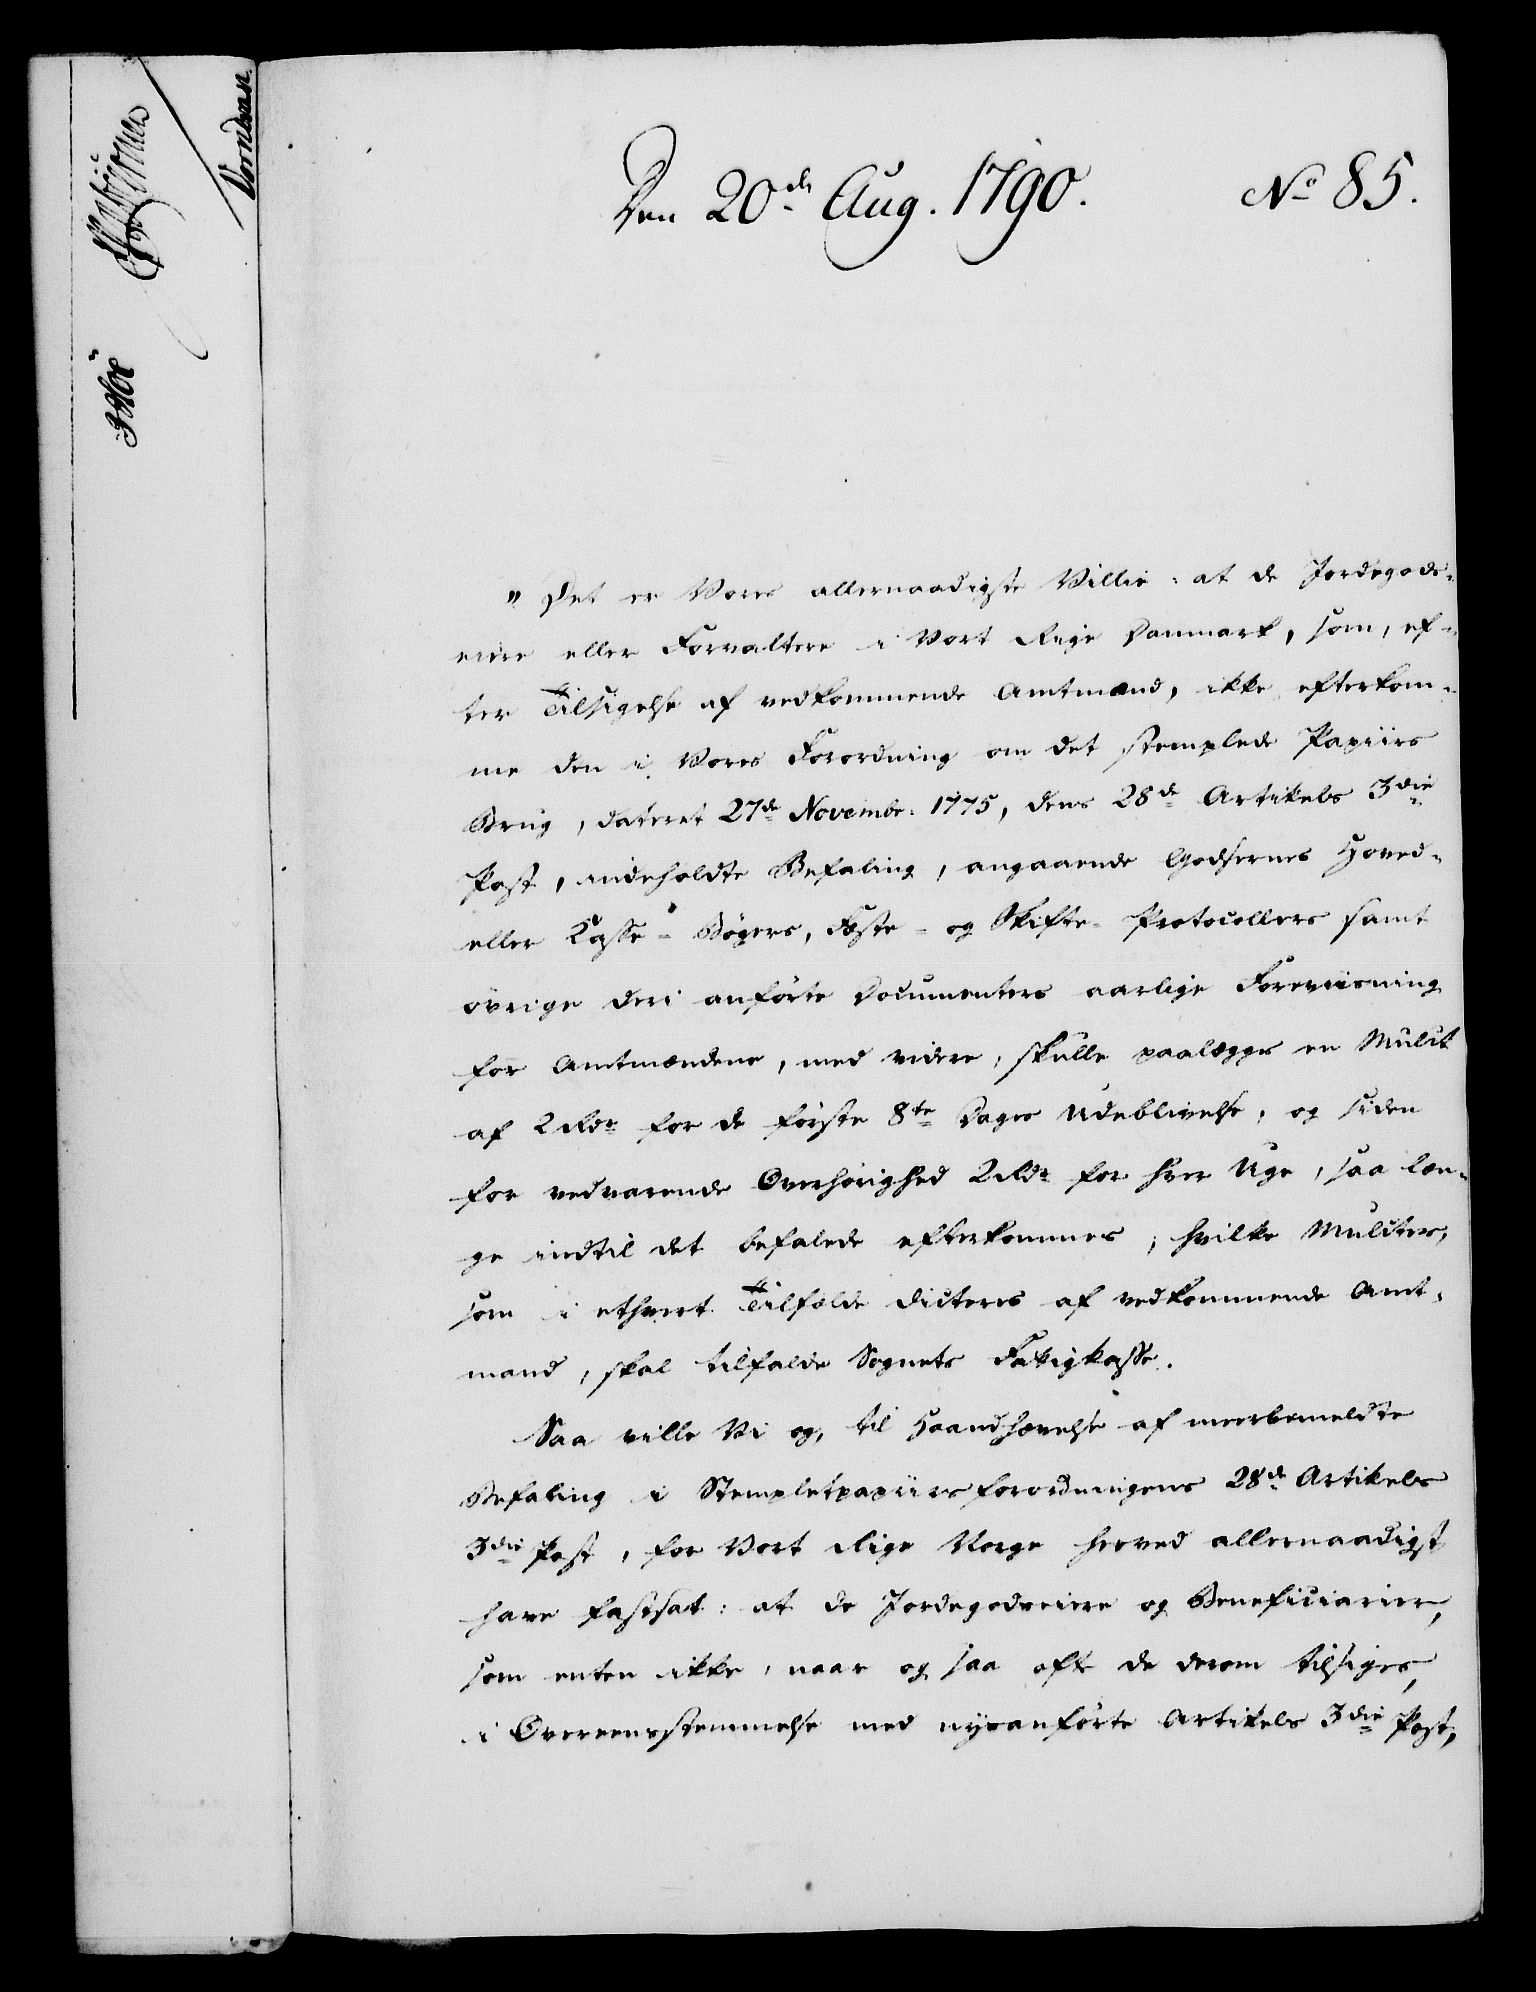 Den 20de Aug. 1790. No 85.
" Det er Vores allernaadigste Villie: at de Jordegods-
eiere eller Forvaltere i Vort Rige Danmark, som, ef-
ter Tilsigelse af vedkommende Amtmænd, ikke efterkom-
me den i Vores Forordning om det stemplede Papiirs
Brug, dateret 27de Novembr. 1775, dens 28de Artikels 3die
Post, indeholdte Befaling, angaaende Godsernes Hoved-
eller Casse- Bøgers, Fæste- og Skifte- Protocollers samt
øvrige deri anførte Documenters aarlige Foreviisning
for Amtmændene, med videre, skulle paalægges en Mulct
af 2 Rdr for de første 8te Dages Udeblivelse, og siden
for vedvarende Overhørighed 2 Rdr for hver Uge, saa læn-
ge indtil det befalede efterkommes, hvilke Mulcter,
som i ethvert Tilfælde dicteres af vedkommende Amt-
mand, skal tilfalde Sognets Fattigkasse.
Saa ville Vi og, til Haandhævelse af meerbemeldte
Befaling i Stempletpapiirsforordningens 28de Artikels
3die Post, for Vort Rige Norge herved allernaadigst
have fastsat: at de Jordegodseiere og Beneficiarier,
som enten ikke, naar og saa ofte de derom tilsiges,
i Overeensstemmelse med nysanførte Artikels 3die Post,